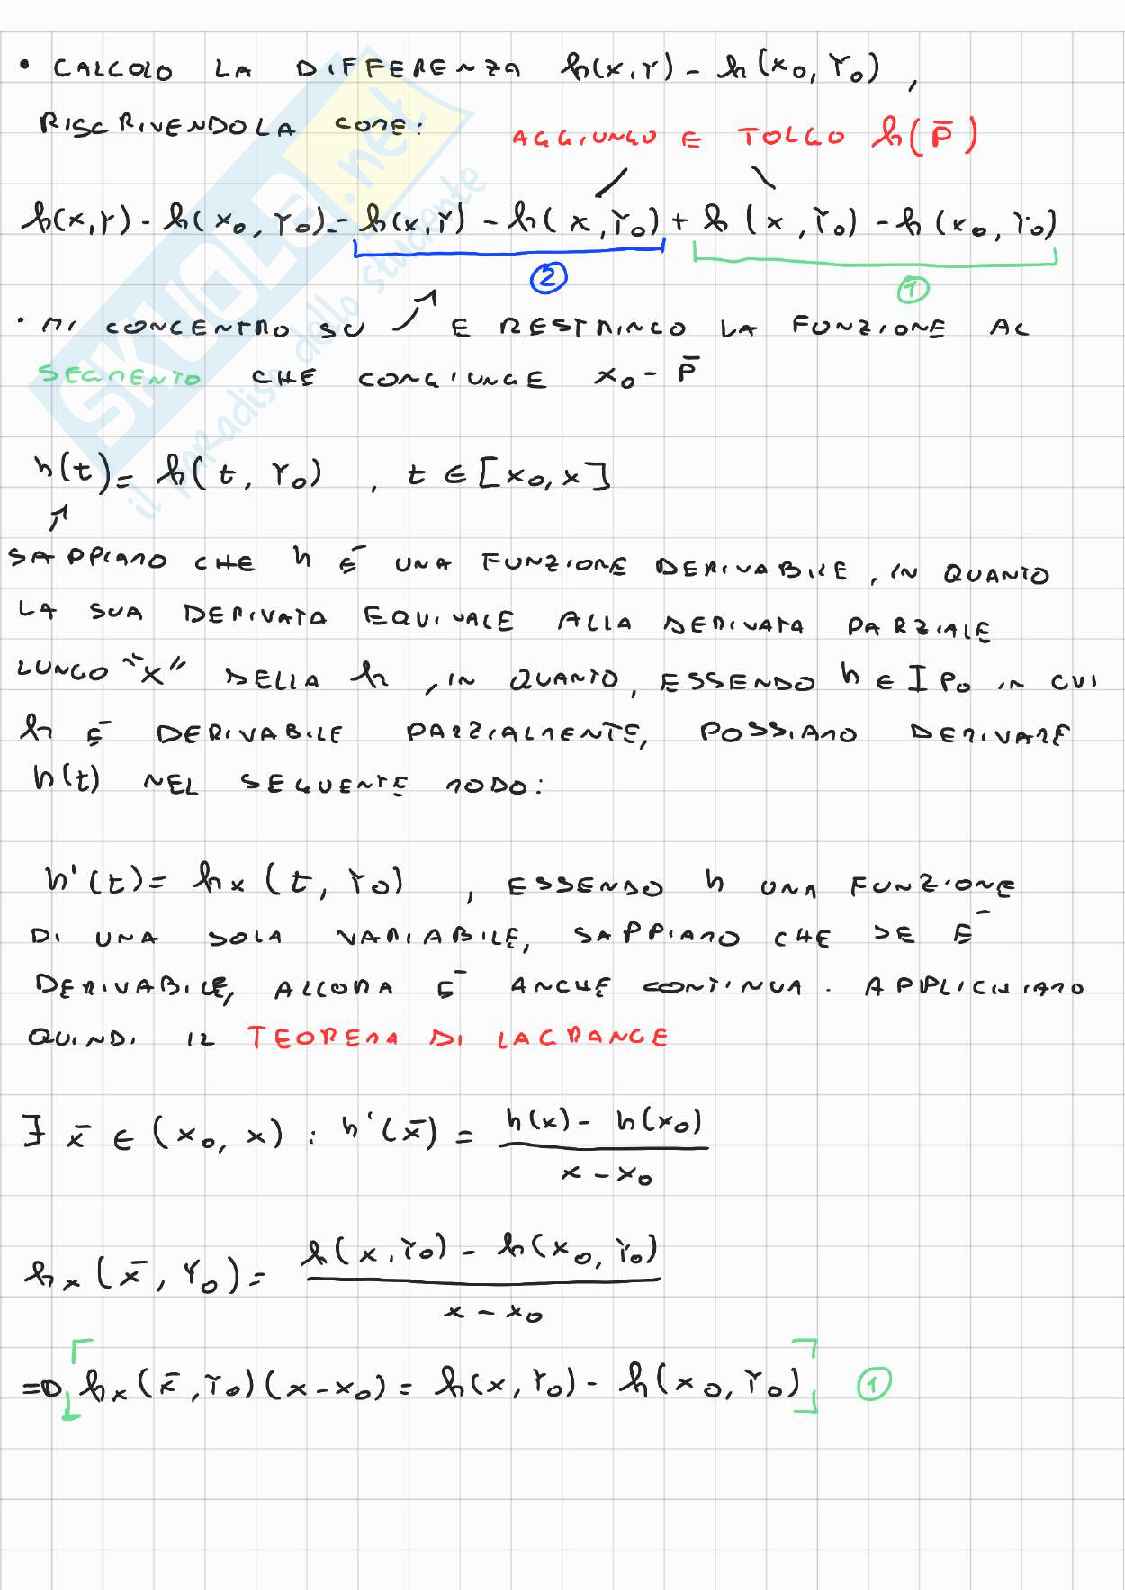 • CALCOLO LA DIFFERENZA h(x,y) - h(x₀, y₀) ,
RISCRIVENDOLA COME: AGGIUNGO E TOLGO h(P̄)
h(x,y) - h(x₀, y₀) = h(x,y) - h(x, y₀) + h(x, y₀) - h(x₀, y₀)
② ①
• MI CONCENTRO SU ↗ E RESTRINGO LA FUNZIONE AL
SEGMENTO CHE CONGIUNGE x₀ - P̄
h(t) = h(t, y₀) , t ∈ [x₀, x]
SAPPIAMO CHE h È UNA FUNZIONE DERIVABILE, IN QUANTO
LA SUA DERIVATA EQUIVALE ALLA DERIVATA PARZIALE
LUNGO "X" DELLA h, IN QUANTO, ESSENDO h ∈ I P₀ IN CUI
h È DERIVABILE PARZIALMENTE, POSSIAMO DERIVARE
h(t) NEL SEGUENTE MODO:
h'(t) = hx (t, y₀) , ESSENDO h UNA FUNZIONE
DI UNA SOLA VARIABILE, SAPPIAMO CHE SE È
DERIVABILE, ALLORA È ANCHE CONTINUA. APPLICHIAMO
QUINDI IL TEOREMA DI LAGRANGE
∃ x̄ ∈ (x₀, x) : h'(x̄) = h(x) - h(x₀)
x - x₀
hx (x̄, y₀) = h(x, y₀) - h(x₀, y₀)
x - x₀
=> hx (x̄, y₀)(x - x₀) = h(x, y₀) - h(x₀, y₀) ①
SKUOLA.net
il paradiso dello studente